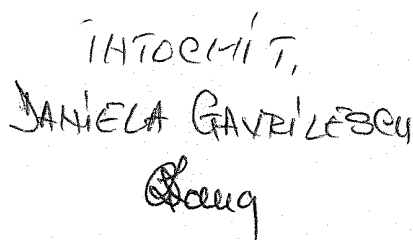 ÎNTOCMIT,
DANIELA GAVRILESCU